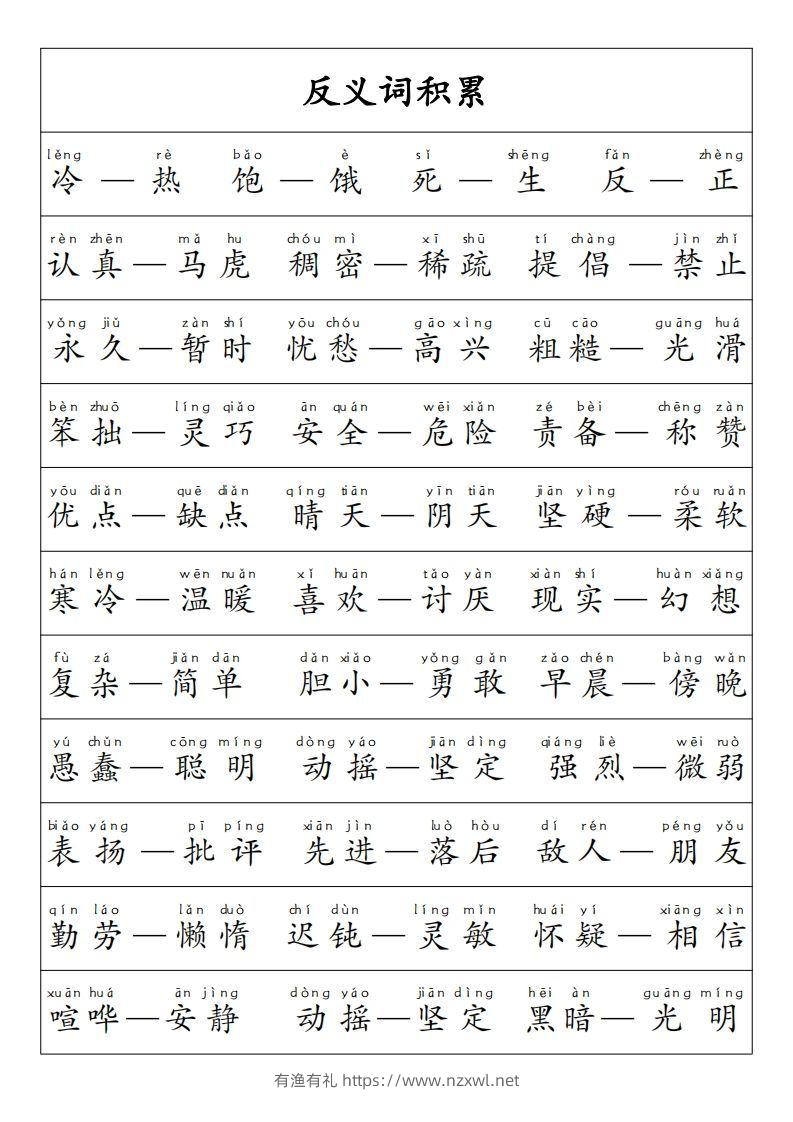 反义词积累
lěng rè bǎo è sǐ shēng fǎn zhèng
冷 — 热 饱 — 饿 死 — 生 反 — 正
rèn zhēn mǎ hu chóu mì xī shū tí chàng jìn zhǐ
认真 — 马虎 稠密 — 稀疏 提倡 — 禁止
yǒng jiǔ zàn shí yōu chóu gāo xìng cū cāo guāng huá
永久 — 暂时 忧愁 — 高兴 粗糙 — 光滑
bèn zhuō líng qiǎo ān quán wēi xiǎn zé bèi chēng zàn
笨拙 — 灵巧 安全 — 危险 责备 — 称赞
yōu diǎn quē diǎn qíng tiān yīn tiān jiān yìng róu ruǎn
优点 — 缺点 晴天 — 阴天 坚硬 — 柔软
hán lěng wēn nuǎn xǐ huān tǎo yàn xiàn shí huàn xiǎng
寒冷 — 温暖 喜欢 — 讨厌 现实 — 幻想
fù zá jiǎn dān dǎn xiǎo yǒng gǎn zǎo chén bàng wǎn
复杂 — 简单 胆小 — 勇敢 早晨 — 傍晚
yú chǔn cōng míng dòng yáo jiān dìng qiáng liè wēi ruò
愚蠢 — 聪明 动摇 — 坚定 强烈 — 微弱
biǎo yáng pī píng xiān jìn luò hòu dí rén péng yǒu
表扬 — 批评 先进 — 落后 敌人 — 朋友
qín láo lǎn duò chí dùn líng mǐn huái yí xiāng xìn
勤劳 — 懒惰 迟钝 — 灵敏 怀疑 — 相信
xuān huá ān jìng dòng yáo jiān dìng hēi àn guāng míng
喧哗 — 安静 动摇 — 坚定 黑暗 — 光明
有渔有礼 https://www.nzxwl.net